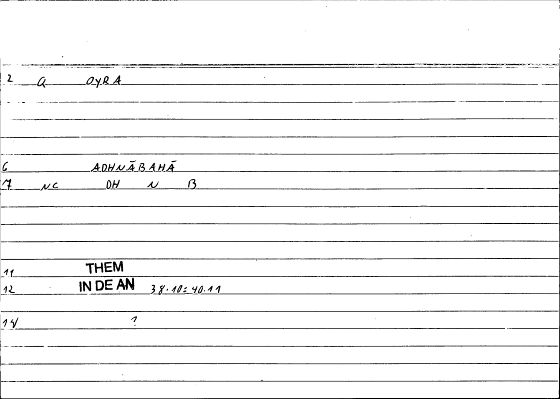 2 Q OYRA
6 ADHNĀBAHĀ
7 NC DH N B
11 THEM
12 IN DE AN 38.10=40.11
14 ?